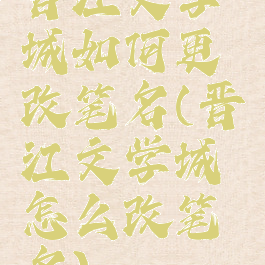 晋江文学
城如何更
改笔名(晋
江文学城
怎么改笔
名)